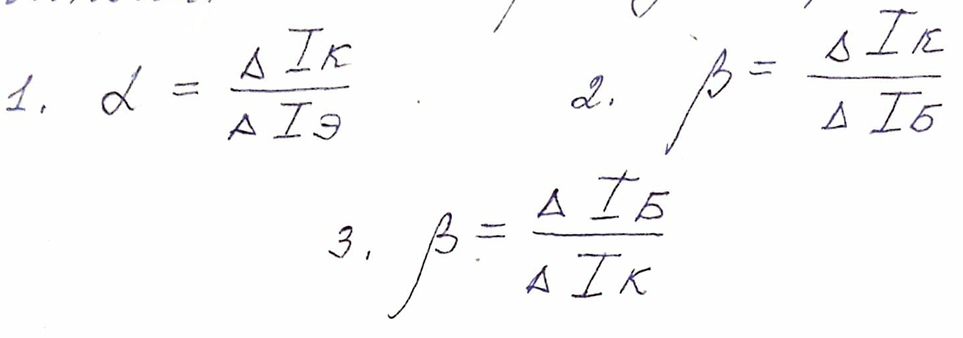 1. α = ΔIк / ΔIэ    2. β = ΔIк / ΔIБ
3. β = ΔIБ / ΔIк